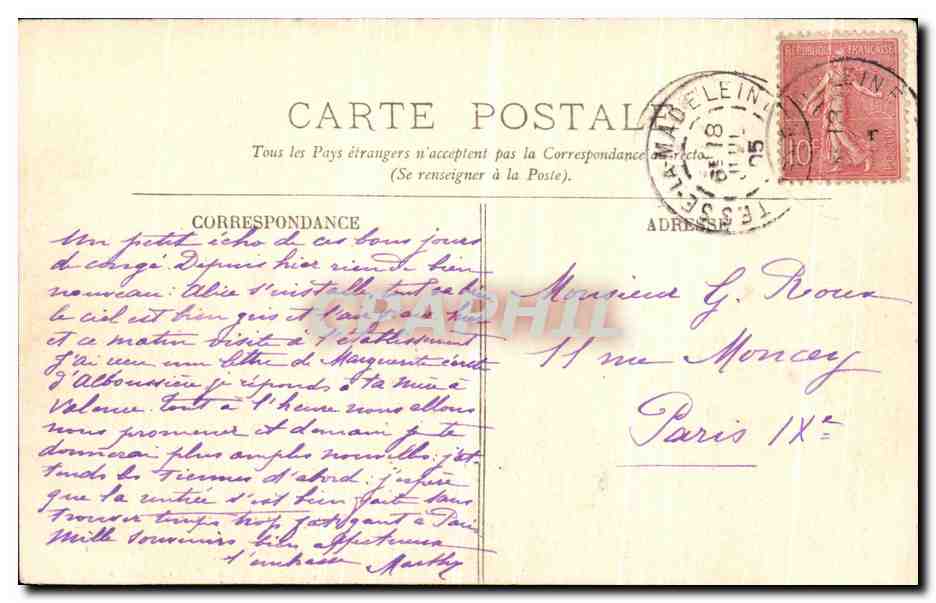 RÉPUBLIQUE FRANÇAISE
10c
TESSÉ-LA-MADELEINE
18
05
CARTE POSTALE
Tous les Pays étrangers n'acceptent pas la Correspondance au recto
(Se renseigner à la Poste).
CORRESPONDANCE
ADRESSE
Un petit écho de ces bons jours
de congé. Depuis hier rien de bien
nouveau : Alice s'installe tout
le ciel est bien gris et
et ce matin visite à l'établissement
J'ai une lettre de Marguerite
d'Alboussière je réponds à ta mère à
Valence. tout à l'heure nous allons
nous promener et demain je te
donnerai plus amples nouvelles : j'at
tends les tiennes d'abord : j'espère
que la rentrée s'est bien faite sans
trouver temps trop fatigant à Paris
Mille souvenirs bien affectueux
t'embrasse Marthe
Monsieur G. Roux
11 rue Moncey
Paris IXe
CPAPHIL